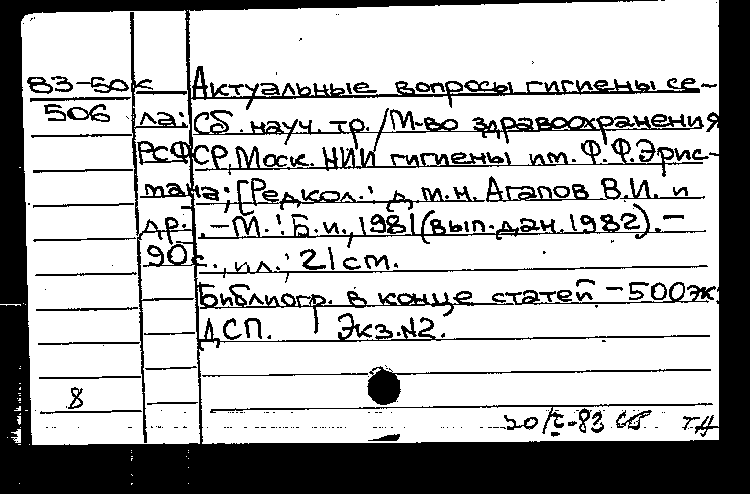 83-50к Актуальные вопросы гигиены се-
506 ла: Сб. науч. тр. /М-во здравоохранения
РСФСР, Моск. НИИ гигиены им. Ф.Ф.Эрис-
мана; [Редкол.: д.м.н. Агапов В.И. и
др. .-М.: Б.и., 1981 (вып.дан.1982).-
90с., ил.; 21см.
Библиогр. в конце статей -500эк.
ДСП. Экз.N2.
8
20/I-83